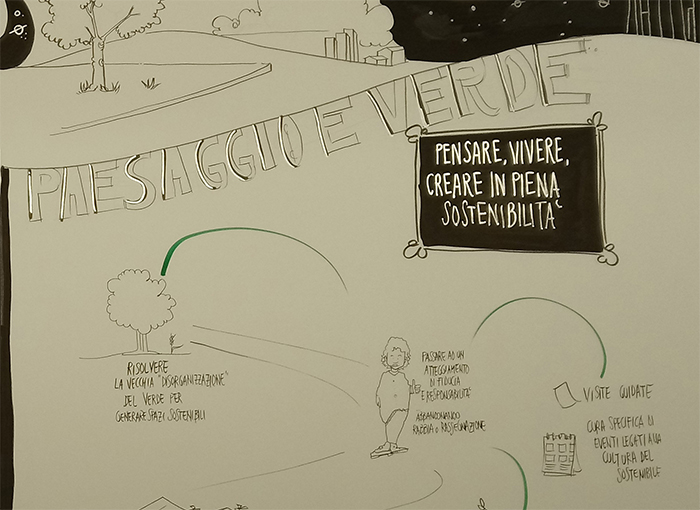 PAESAGGIO E VERDE
PENSARE, VIVERE,
CREARE IN PIENA
SOSTENIBILITÀ
RISOLVERE
LA VECCHIA "DISORGANIZZAZIONE"
DEL VERDE PER
GENERARE SPAZI SOSTENIBILI
PASSARE AD UN
ATTEGGIAMENTO
DI FIDUCIA
E RESPONSABILITÀ
ABBANDONANDO
RABBIA O RASSEGNAZIONE
VISITE GUIDATE
CURA SPECIFICA DI
EVENTI LEGATI ALLA
CULTURA DEL
SOSTENIBILE